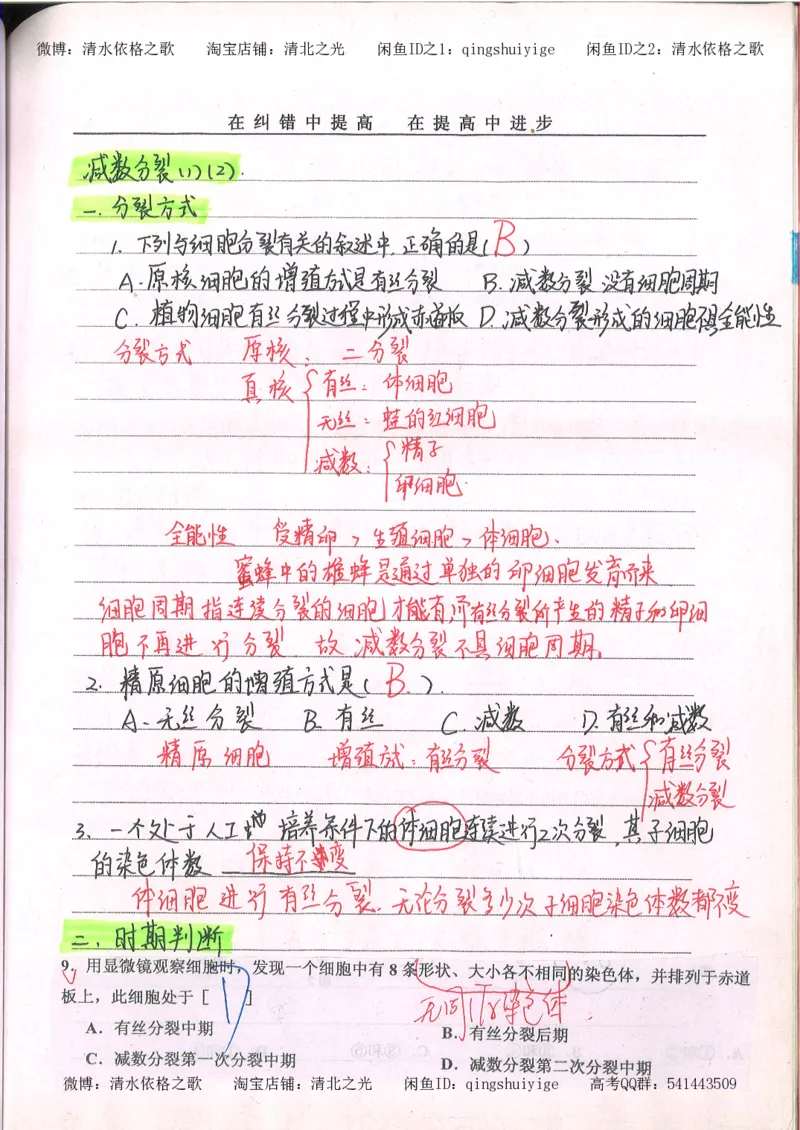 微博：清水依格之歌 淘宝店铺：清北之光 闲鱼ID之1：qingshuiyige 闲鱼ID之2：清水依格之歌
在纠错中提高 在提高中进步
减数分裂(1)(2).
一.分裂方式
1. 下列与细胞分裂有关的叙述中,正确的是( B )
A.原核细胞的增殖方式是有丝分裂 B.减数分裂没有细胞周期
C.植物细胞有丝分裂过程中形成赤道板 D.减数分裂形成的细胞不具全能性
分裂方式 原核：二分裂
真核 有丝：体细胞
无丝：蛙的红细胞
减数：精子
卵细胞
全能性 受精卵>生殖细胞>体细胞.
蜜蜂中的雄蜂是通过单独的卵细胞发育而来
细胞周期指连续分裂的细胞才能有,所有丝分裂所产生的精子和卵细
胞不再进行分裂 故减数分裂不具细胞周期.
2. 精原细胞的增殖方式是( B. ).
A.无丝分裂 B.有丝 C.减数 D.有丝和减数
精原细胞 增殖方式：有丝分裂 分裂方式 有丝分裂
减数分裂
3. 一个处于人工 培养条件下的体细胞连续进行2次分裂,其子细胞
的染色体数 保持不变
体细胞进行有丝分裂.无论分裂多少次子细胞染色体数都不变
二.时期判断
9．用显微镜观察细胞时，发现一个细胞中有 8 条形状、大小各不相同的染色体，并排列于赤道
板上，此细胞处于［ D ］ 无同源染色体.
A．有丝分裂中期 B．有丝分裂后期
C．减数分裂第一次分裂中期 D．减数分裂第二次分裂中期
微博：清水依格之歌 淘宝店铺：清北之光 闲鱼ID：qingshuiyige 高考QQ群：541443509